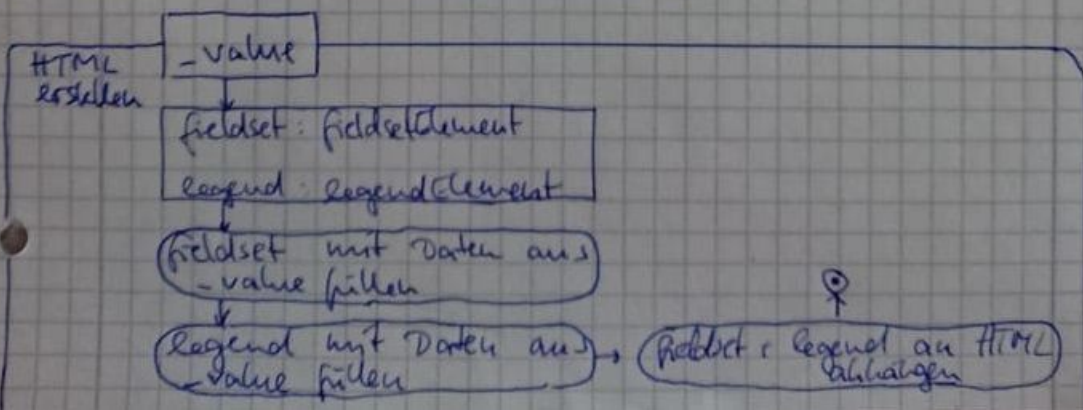 HTML
erstellen
_value
fieldset: fieldsetElement
legend: legendElement
fieldset mit Daten aus
_value füllen
legend mit Daten aus
_value füllen
fieldset & legend an HTML
anhängen